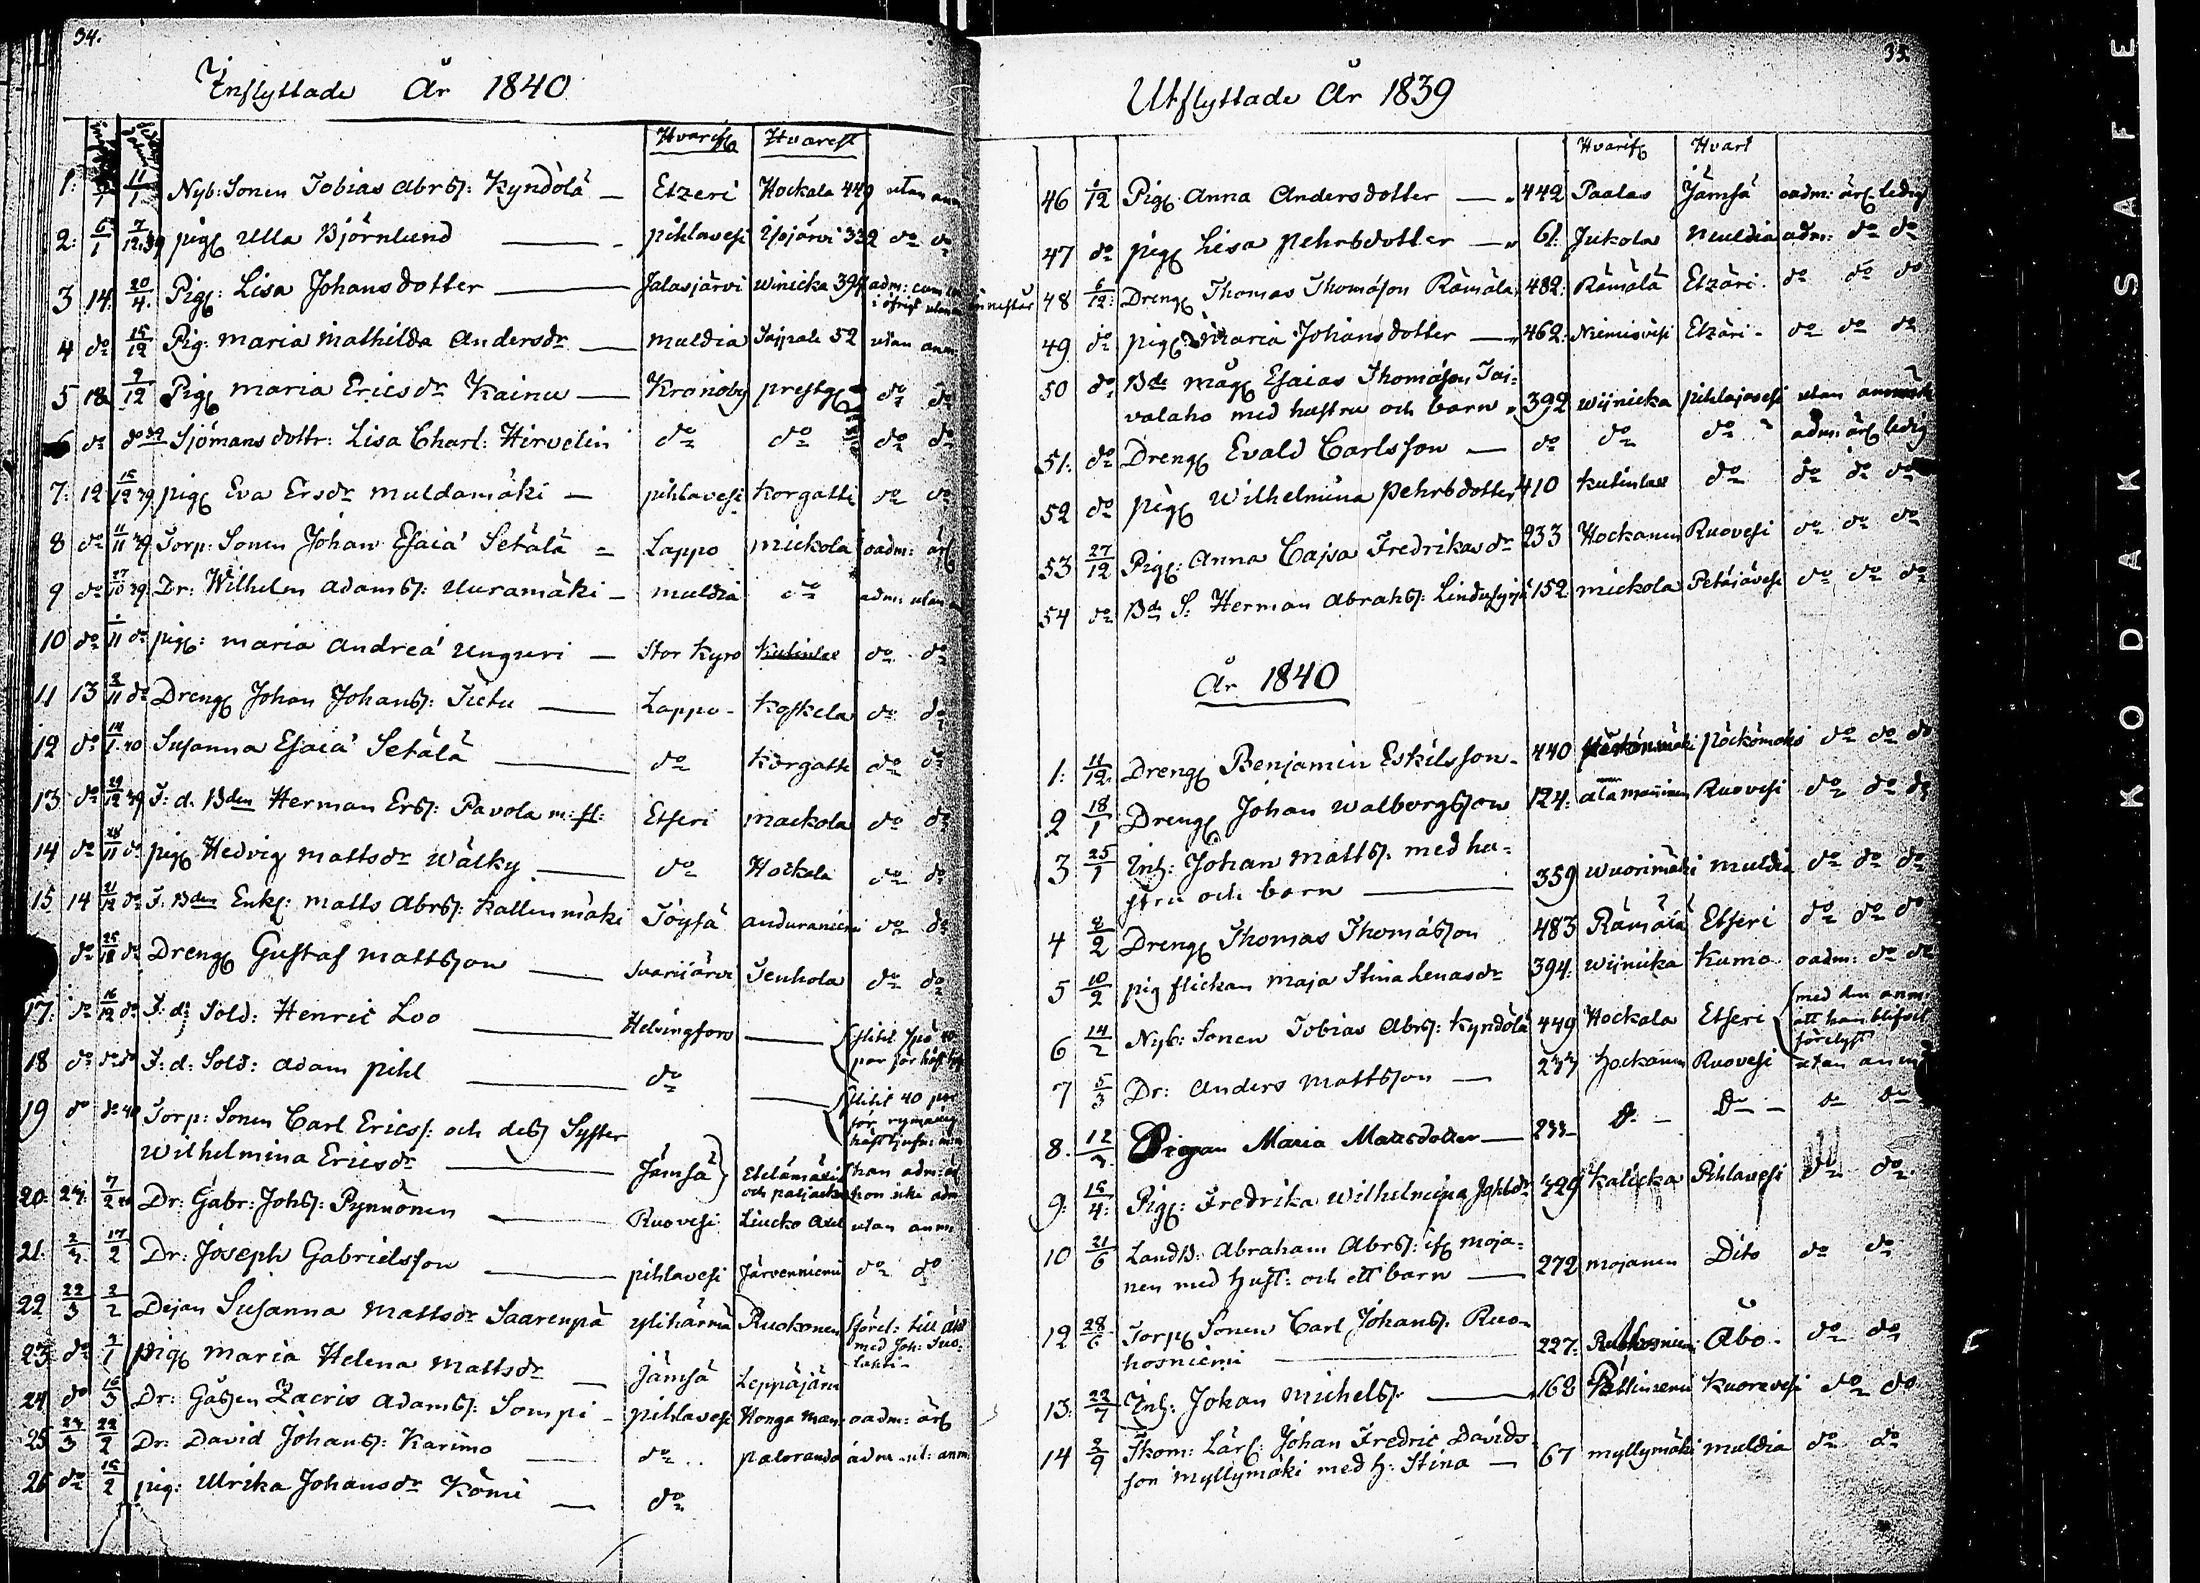 34.
Inflyttade År 1840
Hvarifr Hvarest
1: 11/1 Nyb: Sonen Tobias Abrss: Kyndölä — Etzeri Hockala 449 utan anm
2: 6/1 7/12.39 pig Ulla Björnlund — pihlavesi 332 do do
3 14. 20/4. Pig: Lisa Johansdotter — Jalasjärvi Winicka 394 adm:
i öfrigt utan
4 do 15/12 Pig: Maria Mathilda Andersdr — Muldia 52 utan anm:
5 18 9/12 Pig Maria Ericsdr Kainu — Kronoby prestg do do
6 do do 39 Sjömans dottr: Lisa Charl: Hirvelin do do do do
7: 12 15/12 39 pig Eva Ersdr Muldamäki — pihlavesi Korgatti do do
8 do 11/11 39 Torp: Sonen Johan Esaiæ Setälä = Lappo Mickola oadm: ärl
9 do 27/10 39 Dr: Wilhelm Adamss: Uuramäki — Muldia do adm: utan a
10 do /11 do pig: Maria Andreæ Unguri — Stor Kyro Kutinlax do do
11 13 3/11 do Dreng Johan Johanss: Tietu — Lappo — Koskela do do
12 do 14/1. 40 Susanna Esaiæ Setälä — do Korgatti do do
13 do 29/12 39 F. d. Bden Herman Erss: Pavola m: fl: Etseri Mackola do do
14 do 28/11 do pig Hedvig Mattsdr Wälky — do Hockala do do
15 14 21/12 do F. Bden Enkl: Matts Abrss: Kallenmäki Töysä anduraniemi do do
do 25/12 do Dreng Gustaf Mattsson — Saarijärvi Tenhola do do
17: do 16/12 do F: d: Sold: Henric Loo — Helsingfors —
18 do do do F: d: Sold: Adam Pihl — do —
19 do do 40 Torp: Sonen Carl Ericss: och dess Syster
Wilhelmina Ericsdr — Jämsä Etelämäki han adm: är
och paljacka hon icke adm
20: 24: 7/2 40 Dr: Gabr: Johss: Pynnönen — Ruovesi Liucko utan anm:
21. 2/3 17/2 Dr: Joseph Gabrielsson — pihlavesi Järvenniemi do do
22 22/3 2/2 Dejan Susanna Mattsdr Saarenpä ylihärmä Ruokonen föret: till äkt
med Joh: Suo-
lahti —
23: do 7/1 pig Maria Helena Mattsdr — Jämsä Leppäjärvi
24 do 16/3 Dr: Gåssen Zacris Adamss: Sompi — pihlavesi Honga man: oadm: ärl
25 24/3 22/2 Dr: David Johanss: Karimo — do .. paloranda adm: ut: anm:
26 do 15/2 pig: Ulrika Johansdr Kömi — do
35
Utflyttade År 1839
Hvarifr Hvart
46 1/12 Pig Anna Andersdotter — 442 Paalas Jämsä oadm: ärl: ledig
47 do pig Lisa Pehrsdotter — 61. Jukola Muldia adm: do do
48 6/12: Dreng Thomas Thomasson Rämälä 482: Rämälä Etzäri. do do do
49 do pig Maria Johansdotter — 462: Niemisvesi Etzäri — do do do
50 do Bde måg Esaias Thomasson Tai-
valaho med hustru och barn 392 wijnicka pihlajavesi utan anmärk
51: do Dreng Evald Carlsson — do do do adm: ärl ledig
52 do pig Wilhelmina Pehrsdotter 410 kutinlax do do do do
53 27/12 Pig: Anna Cajsa Fredrikasdr 233 Hockanen Ruovesi do do do
54 do Bde S: Herman Abrahss: Lindusyrjä 152 Mickola Petäjävesi do do do
År 1840
1: 11/12. Dreng Benjamin Eskilsson — 440 päckömäki do do do
2 18/1 Dreng Johan Walborgsson 124: alamanninen Ruovesi do do do
3 25/1 Inh: Johan Mattss: med hu-
stru och barn — 359 Wuorimäki Muldia do do do
4 2/2 Dreng Thomas Thomasson 483 Rämälä Etseri do do do
5 10/2 pig flickan Maja Stina Lenasdr 394: Wijnicka Kumo oadm: do do
6 14/2 Nyb: Sonen Tobias Abrss: Kyndölä 449 Hockala Etseri med den anm:
att han blifvit
förelyst
7 5/3 Dr: Anders Mattsson — 233 Hockanen Ruovesi utan anm
8. 12/3 Pigan Maria Mattsdotter — 233 do — do — do do
9: 15/4: Pig: Fredrika Wilhelmina Johsdr 329 Kalicka Pihlavesi do do.
10 21/6 Landb: Abraham Abrss: ifr Moja-
nen med hust: och ett barn — 272 Mojanen Dito do do
12 28/6 Torp Sonen Carl Johanss: Ruo-
hosniemi — 227: Ruohosniemi Åbo. do do
13: 22/7 Inh: Johan Michelss: — 168 Kuorevesi do do
14 2/9 Skom: Lärl: Johan Fredric Davids-
son Myllymäki med h: Stina — 67 Myllymäki Muldia do do
KODAK SAFE